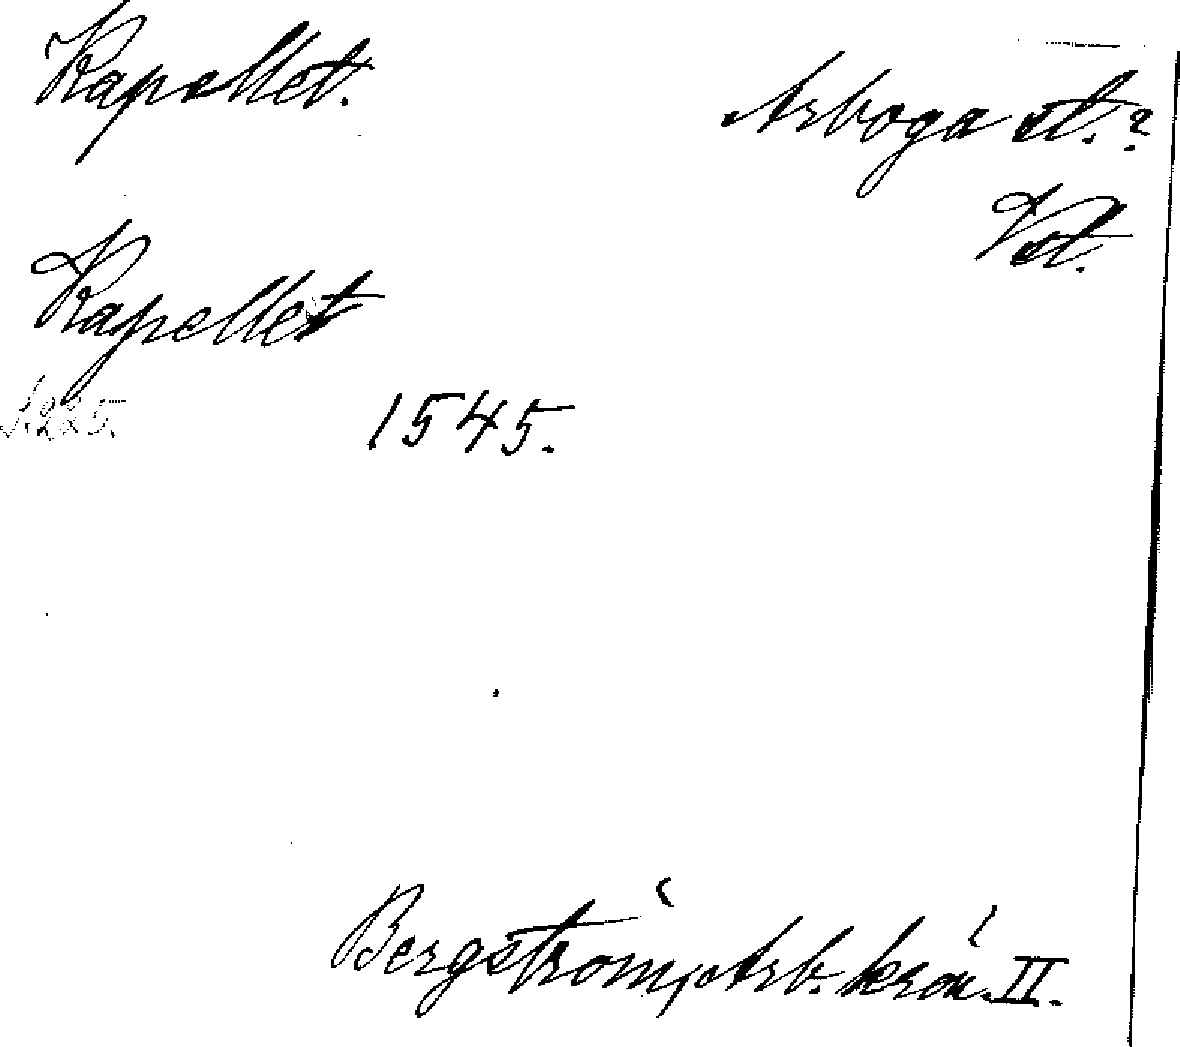 Kapellet.
Arboga st.?
Vst.
Kapellet
s. 225.
1545.
Bergström, Arb. krön. II.